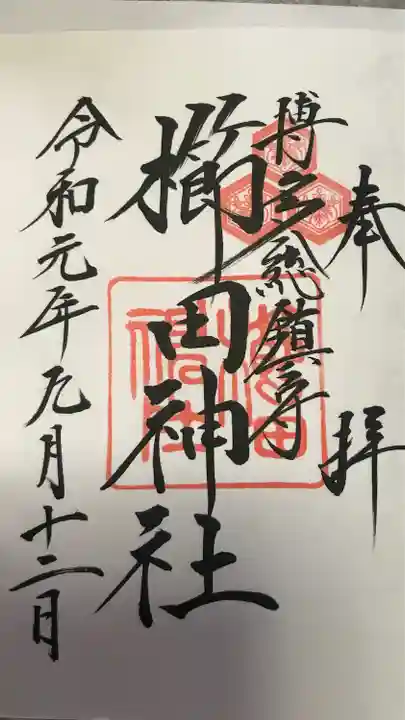 奉拝
博多総鎮守
櫛田神社
令和元年九月十二日